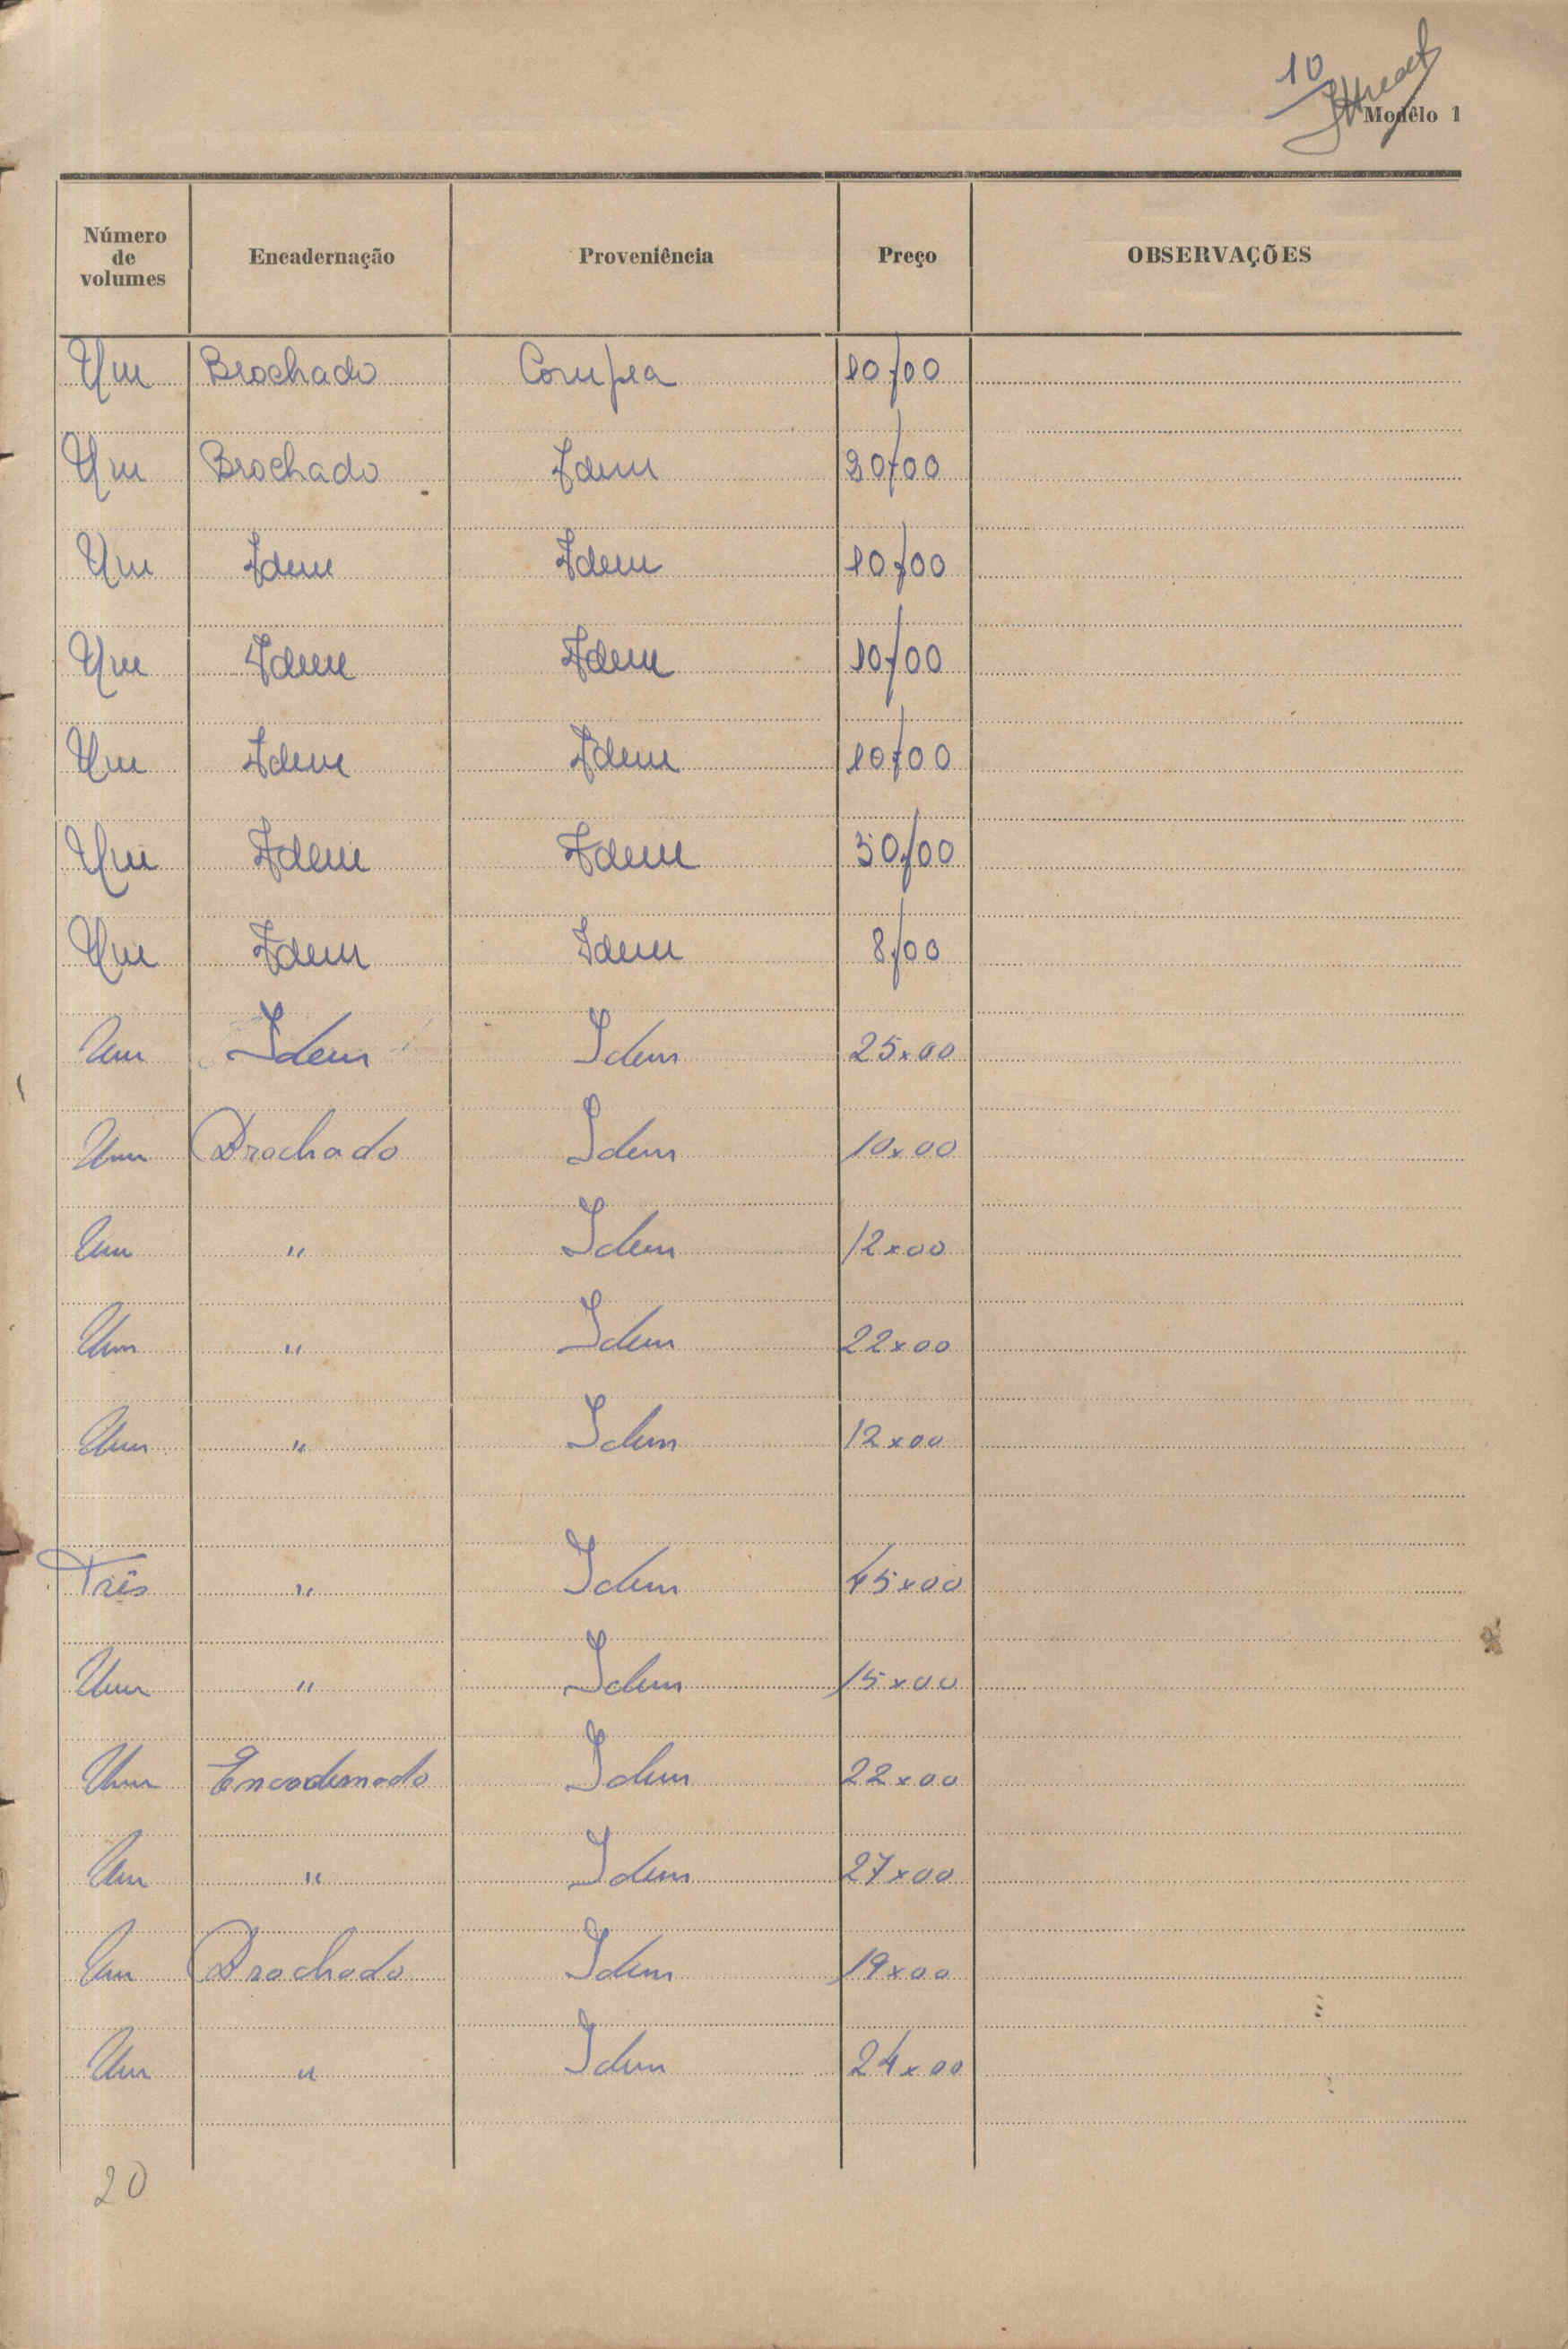 10
Modêlo 1
Número de volumes Encadernação Proveniência Preço OBSERVAÇÕES
Um Brochado Compra 10$00
Um Brochado Idem 20$00
Um Idem Idem 10$00
Um Idem Idem 10$00
Um Idem Idem 10$00
Um Idem Idem 50$00
Um Idem Idem 8$00
Um Idem Idem 25x00
Um Brochado Idem 10x00
Um " Idem 12x00
Um " Idem 22x00
Um " Idem 12x00
Três " Idem 45x00
Um " Idem 15x00
Um Encadernado Idem 22x00
Um " Idem 27x00
Um Brochado Idem 19x00
Um " Idem 24x00
20